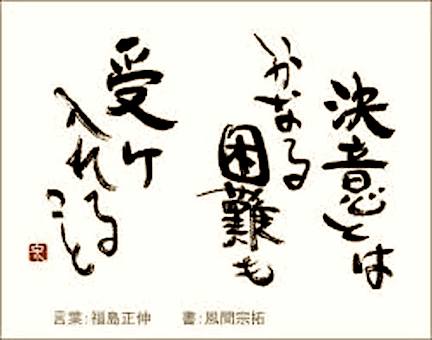 決意とは
いかなる
困難も
受け
入れる
こと
言葉:福島正伸 書:風間宗拓